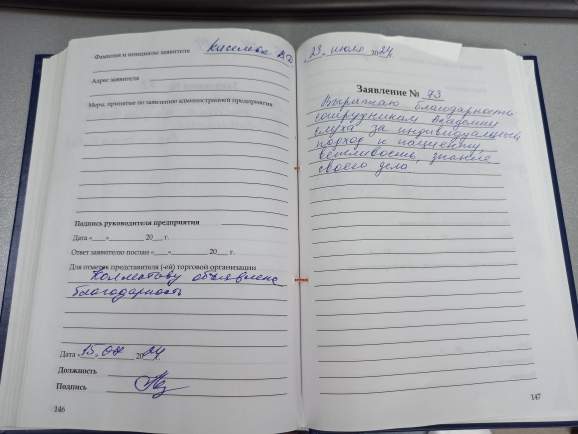 Фамилия и инициалы заявителя Киселев
Адрес заявителя
Меры, принятые по заявлению администрацией предприятия
Подпись руководителя предприятия
Дата «___»________ 20__ г.
Ответ заявителю послан «___»________ 20__ г.
Для отметок представителя (-ей) торговой организации
Коллективу объявлена
благодарность
Дата «15. 20 24 г.
Должность
Подпись
246
23. июля 2024
Заявление № 73
Выражаю благодарность
сотрудникам Академии
слуха за индивидуальный
подход к пациенту,
вежливость, знание
своего дела
247